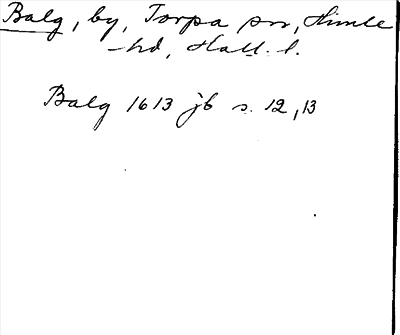 Balg, by, Torpa sn, Himle
-hd, Hall. l.
Balg 1613 jb s. 12, 13